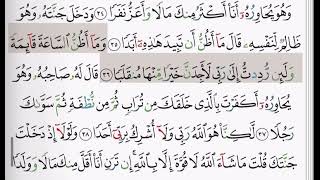 وَهُوَ يُحَاوِرُهُۥٓ أَنَا أَكْثَرُ مِنكَ مَالًا وَأَعَزُّ نَفَرًا ٣٤ وَدَخَلَ جَنَّتَهُۥ وَهُوَ
ظَالِمٌ لِّنَفْسِهِۦ قَالَ مَآ أَظُنُّ أَن تَبِيدَ هَٰذِهِۦٓ أَبَدًا ٣٥ وَمَآ أَظُنُّ ٱلسَّاعَةَ قَآئِمَةً
وَلَئِن رُّدِدتُّ إِلَىٰ رَبِّى لَأَجِدَنَّ خَيْرًا مِّنْهُمَا مُنقَلَبًا ٣٦ قَالَ لَهُۥ صَاحِبُهُۥ وَهُوَ
يُحَاوِرُهُۥٓ أَكَفَرْتَ بِٱلَّذِى خَلَقَكَ مِن تُرَابٍ ثُمَّ مِن نُّطْفَةٍ ثُمَّ سَوَّىٰكَ
رَجُلًا ٣٧ لَّٰكِنَّا هُوَ ٱللَّهُ رَبِّى وَلَآ أُشْرِكُ بِرَبِّىٓ أَحَدًا ٣٨ وَلَوْلَآ إِذْ دَخَلْتَ
جَنَّتَكَ قُلْتَ مَا شَآءَ ٱللَّهُ لَا قُوَّةَ إِلَّا بِٱللَّهِ إِن تَرَنِ أَنَا أَقَلَّ مِنكَ مَالًا وَوَلَدًا